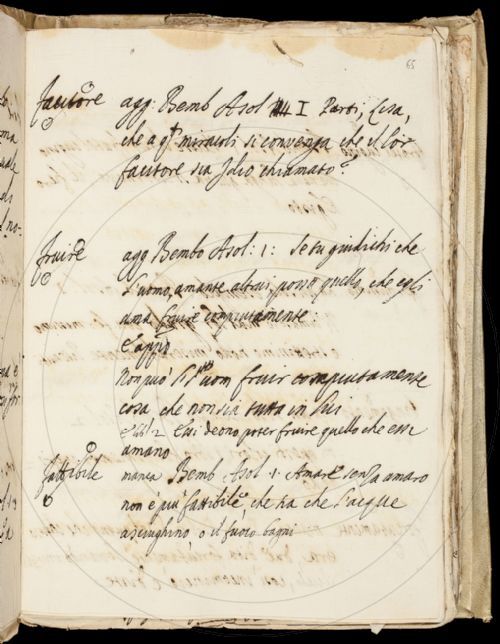 65
facitore agg: Bemb Asol I Parti, Lisa,
che a q.ti miracoli si convenga che il lor
facitore sia Idio chiamato?
fruire agg Bembo Asol: 1: Se tu giudichi che
l'uomo, amante altrui, possa quello, che egli
ama fruire compiutamente:
E appo
non può l'uom fruir compiutamente
cosa che non sia tutta in lui
2 Lui deono poter fruire quello che essi
amano
fattibile manca Bemb Asol 1: Amare senza amaro
non è più fattibile, che sia che l'acque
asciughino, o il fuoco bagni